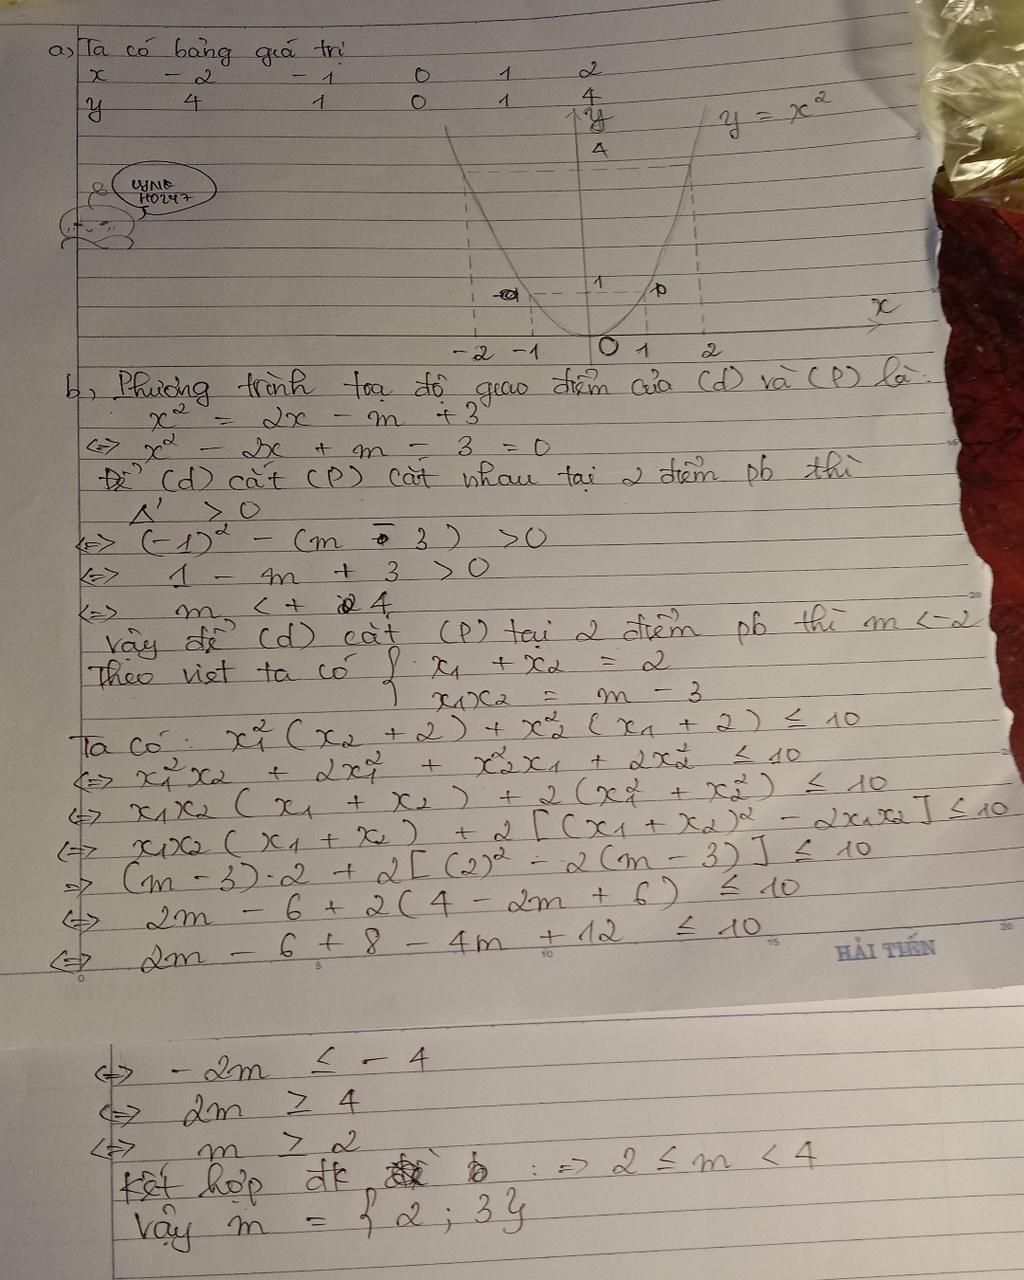 a, Ta có bảng giá trị
x -2 -1 0 1 2
y 4 1 0 1 4
y
y = x²
4
1
x
-2 -1 0 1 2
b, Phương trình toạ độ giao điểm của (d) và (P) là:
x² = 2x - m + 3
<=> x² - 2x + m - 3 = 0
Để (d) cắt (P) cắt nhau tại 2 điểm pb thì
Δ' > 0
<=> (-1)² - (m - 3) > 0
<=> 1 - m + 3 > 0
<=> m < + 4
Vậy để (d) cắt (P) tại 2 điểm pb thì m < -2
Theo viet ta có { x₁ + x₂ = 2
x₁x₂ = m - 3
Ta có: x₁² (x₂ + 2) + x₂² (x₁ + 2) ≤ 10
<=> x₁²x₂ + 2x₁² + x₂²x₁ + 2x₂² ≤ 10
<=> x₁x₂ (x₁ + x₂) + 2 (x₁² + x₂²) ≤ 10
<=> x₁x₂ (x₁ + x₂) + 2 [(x₁ + x₂)² - 2x₁x₂] ≤ 10
=> (m - 3).2 + 2[(2)² - 2(m - 3)] ≤ 10
<=> 2m - 6 + 2(4 - 2m + 6) ≤ 10
<=> 2m - 6 + 8 - 4m + 12 ≤ 10
HẢI TIẾN
<=> -2m ≤ -4
<=> 2m ≥ 4
<=> m ≥ 2
Kết hợp đk : => 2 ≤ m < 4
Vậy m = {2; 3}